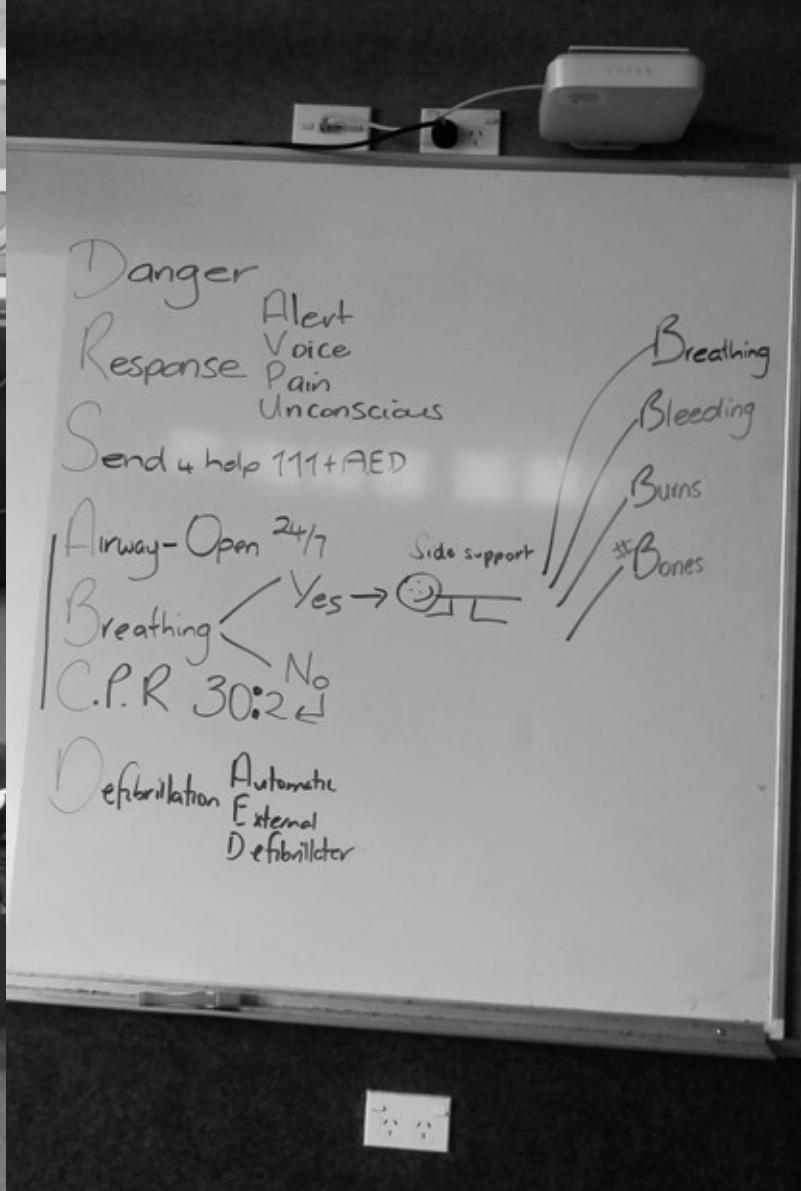 Danger
Response
Alert
Voice
Pain
Unconscious
Send 4 help 111 + AED
Airway - Open 24/7
Breathing
Yes →
No
C.P.R 30:2 ↵
Defibrillation
Automatic
External
Defibrillator
Side support
Breathing
Bleeding
Burns
#Bones